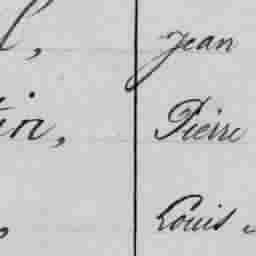 l, Jean
in, Pierre
, Louis